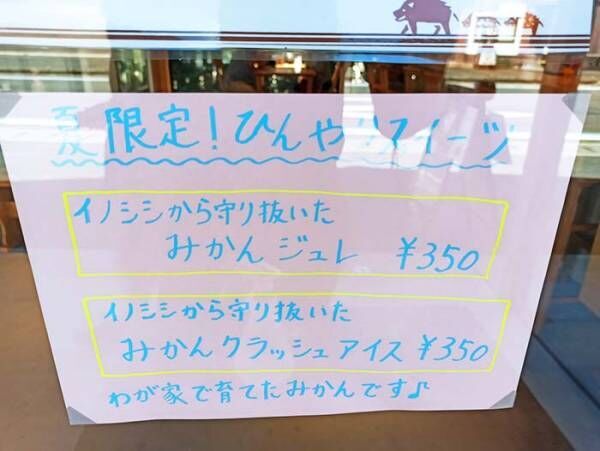 夏限定!ひんやりスイーツ
イノシシから守り抜いた
みかんジュレ ¥350
イノシシから守り抜いた
みかんクラッシュアイス ¥350
わが家で育てたみかんです♪